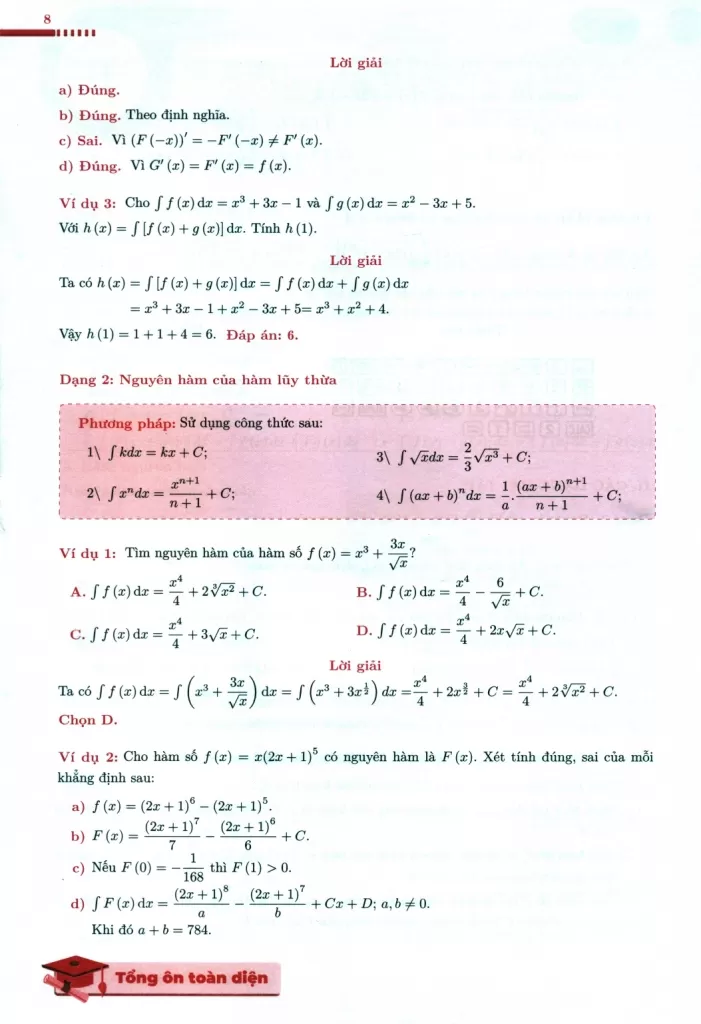 8
Lời giải
a) Đúng.
b) Đúng. Theo định nghĩa.
c) Sai. Vì (F (−x))′ = −F′ (−x) ≠ F′ (x).
d) Đúng. Vì G′ (x) = F′ (x) = f (x).
Ví dụ 3: Cho ∫ f (x) dx = x³ + 3x − 1 và ∫ g (x) dx = x² − 3x + 5.
Với h (x) = ∫ [f (x) + g (x)] dx. Tính h (1).
Lời giải
Ta có h (x) = ∫ [f (x) + g (x)] dx = ∫ f (x) dx + ∫ g (x) dx
= x³ + 3x − 1 + x² − 3x + 5= x³ + x² + 4.
Vậy h (1) = 1 + 1 + 4 = 6. Đáp án: 6.
Dạng 2: Nguyên hàm của hàm lũy thừa
Phương pháp: Sử dụng công thức sau:
1\ ∫ kdx = kx + C;
3\ ∫ √x dx = 2/3 √(x³) + C;
2\ ∫ xⁿdx = xⁿ⁺¹/(n + 1) + C;
4\ ∫ (ax + b)ⁿ dx = 1/a . (ax + b)ⁿ⁺¹/(n + 1) + C;
Ví dụ 1: Tìm nguyên hàm của hàm số f (x) = x³ + 3x/√x?
A. ∫ f (x) dx = x⁴/4 + 2∛(x²) + C.
B. ∫ f (x) dx = x⁴/4 − 6/√x + C.
C. ∫ f (x) dx = x⁴/4 + 3√x + C.
D. ∫ f (x) dx = x⁴/4 + 2x√x + C.
Lời giải
Ta có ∫ f (x) dx = ∫ (x³ + 3x/√x) dx = ∫ (x³ + 3x^(1/2)) dx = x⁴/4 + 2x^(3/2) + C = x⁴/4 + 2∛(x²) + C.
Chọn D.
Ví dụ 2: Cho hàm số f (x) = x(2x + 1)⁵ có nguyên hàm là F (x). Xét tính đúng, sai của mỗi
khẳng định sau:
a) f (x) = (2x + 1)⁶ − (2x + 1)⁵.
b) F (x) = (2x + 1)⁷/7 − (2x + 1)⁶/6 + C.
c) Nếu F (0) = −1/168 thì F (1) > 0.
d) ∫ F (x) dx = (2x + 1)⁸/a − (2x + 1)⁷/b + Cx + D; a, b ≠ 0.
Khi đó a + b = 784.
Tổng ôn toàn diện